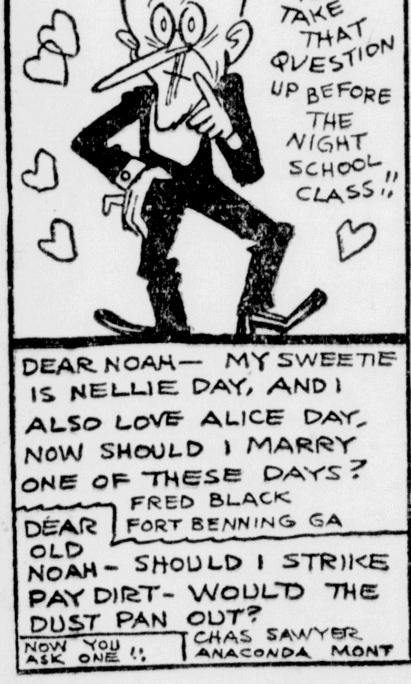 TAKE
THAT
QUESTION
UP BEFORE
THE
NIGHT
SCHOOL
CLASS!!
DEAR NOAH— MY SWEETIE
IS NELLIE DAY, AND I
ALSO LOVE ALICE DAY,
NOW SHOULD I MARRY
ONE OF THESE DAYS?
FRED BLACK
FORT BENNING GA
DEAR
OLD
NOAH- SHOULD I STRIKE
PAY DIRT- WOULD THE
DUST PAN OUT?
CHAS SAWYER
ANACONDA MONT
NOW YOU
ASK ONE!!